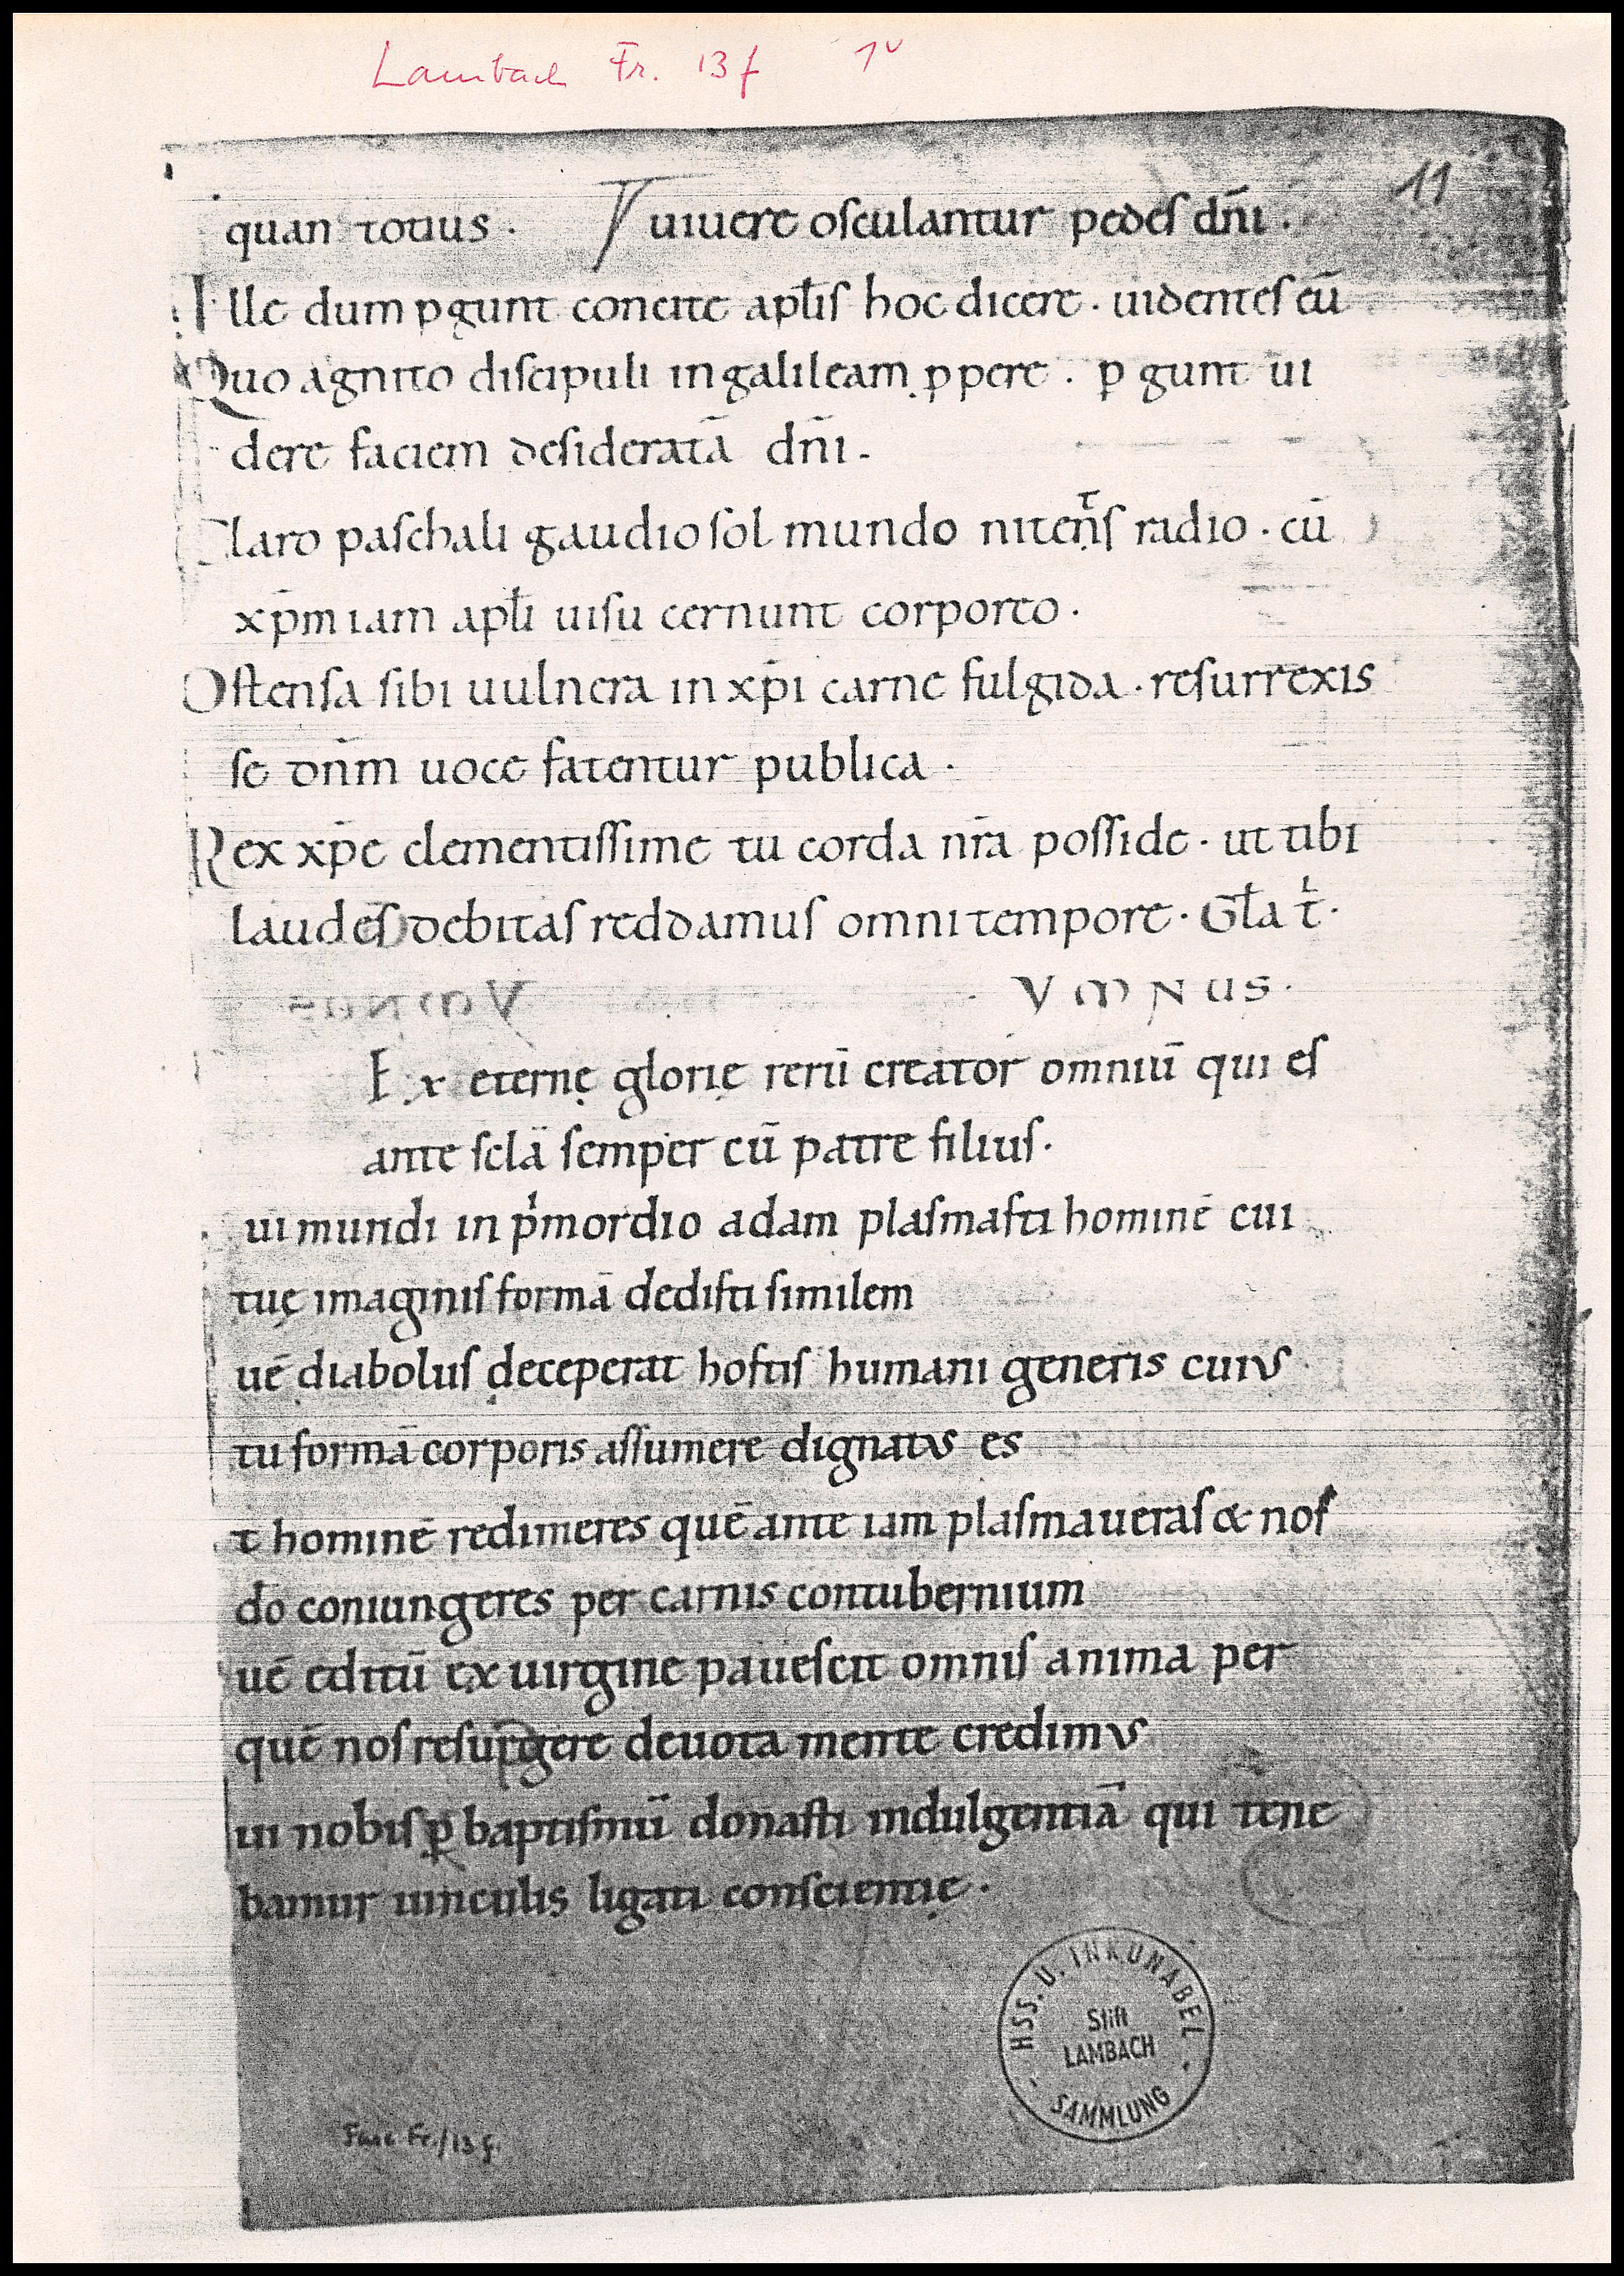 Lambach Fr. 13f 1v
11
quan totius · uiuere osculantur pedes dn̄i ·
Ille dum ꝑgunt concite apłis hoc dicere · uidentes eū
Quo agnito discipuli in galileam ꝓpere · ꝑ gunt ui
dere faciem desideratā dn̄i ·
Claro paschali gaudio sol mundo niteṇ̄s radio · cū
xp̄m iam apłi uisu cernunt corporeo ·
Ostensa sibi uulnera in xp̄i carne fulgida · resurrexis
se dn̄m uoce fatentur publica ·
Rex xp̄e clementissime tu corda nr̄a posside · ut tibi
laudes debitas reddamus omni tempore · Gła t̄ ·
YMNUS ·
Ex eternę glorię rerū creator omniū qui es
ante scła semper cū patre filius ·
ui mundi in pͥmordio adam plasmasti hominē cui
tuę imaginis formā dedisti similem
uē diabolus deceperat hostis humani generis cuius
tu formā corporis assumere dignatus es
t hominē redimeres quē ante iam plasmaueras & nos
do coniungeres per carnis contubernium
uē editū ex uirgine pauescit omnis anima per
quē nos resurgere deuota mente credimus
ui nobis ꝑ baptismū donasti indulgentiā qui tene
bamur uinculis ligati conscientię ·
HSS. U. INKUNABEL
Stift
LAMBACH
SAMMLUNG
Fr./13 f.